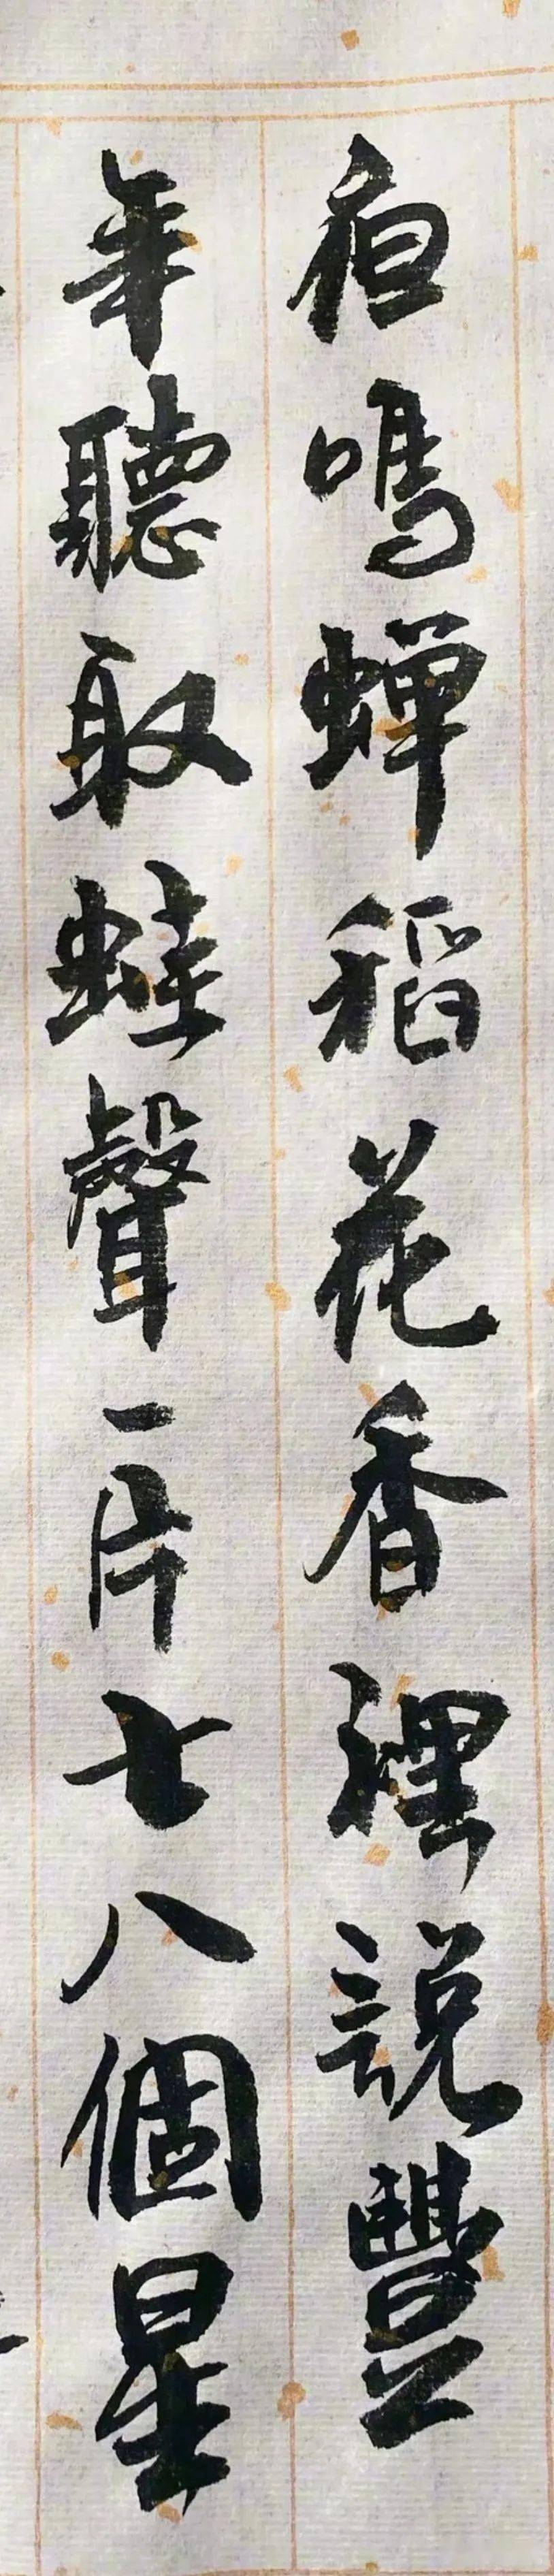 夜鳴蟬稻花香裡説豐
年聽取蛙聲一片七八個星